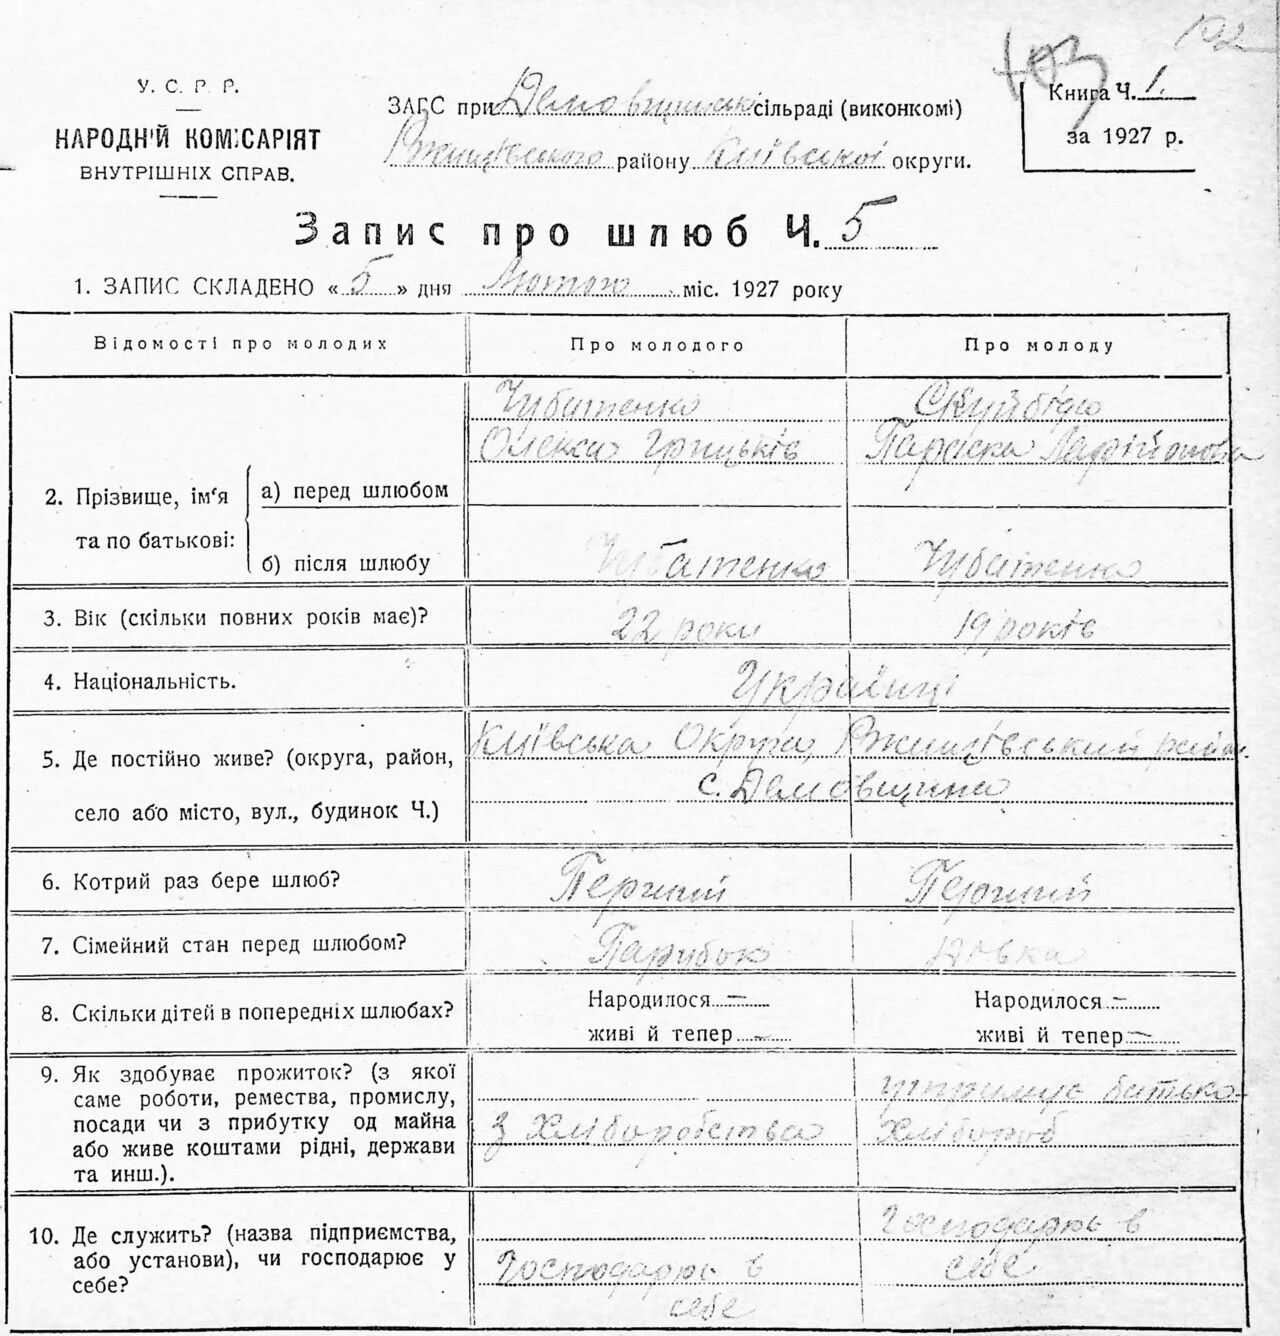 102
103
У. С. Р. Р.
НАРОДНІЙ КОМІСАРІЯТ
ВНУТРІШНІХ СПРАВ.
ЗАГС при Демовщинські сільраді (виконкомі)
Ржищівського району Київської округи.
Книга Ч. 1.
за 1927 р.
Запис про шлюб Ч. 5
1. ЗАПИС СКЛАДЕНО « 5 » дня Лютого міс. 1927 року
Відомості про молодих
Про молодого
Про молоду
2. Прізвище, ім'я та по батькові:
а) перед шлюбом
Чубатенко
Олекса Грицьків
Скуйбіда
Параска Ларійонова
б) після шлюбу
Чубатенко
Чубатенко
3. Вік (скільки повних років має)?
22 роки
19 років
4. Національність.
Українці
5. Де постійно живе? (округа, район,
село або місто, вул., будинок Ч.)
Київська Округа, Ржищівський район
с. Демовщина
6. Котрий раз бере шлюб?
Перший
Перший
7. Сімейний стан перед шлюбом?
Парубок
Дівка
8. Скільки дітей в попередніх шлюбах?
Народилося —
живі й тепер —
Народилося —
живі й тепер —
9. Як здобуває прожиток? (з якої
саме роботи, ремества, промислу,
посади чи з прибутку од майна
або живе коштами рідні, держави
та инш.).
з Хліборобства
утримує батько-
Хлібороб
10. Де служить? (назва підприємства,
або установи), чи господарює у
себе?
Господарює в
себе
Господарює в
себе